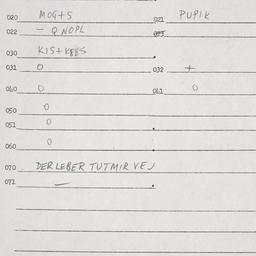 020 MOG+S 021 PUPIK
022 – Q NOPL
030 KIS+KEES
031 0 032 +
040 0 041 0
050 0
051 0
060 0
070 DER LEBER TUT MIR VEJ
071 –